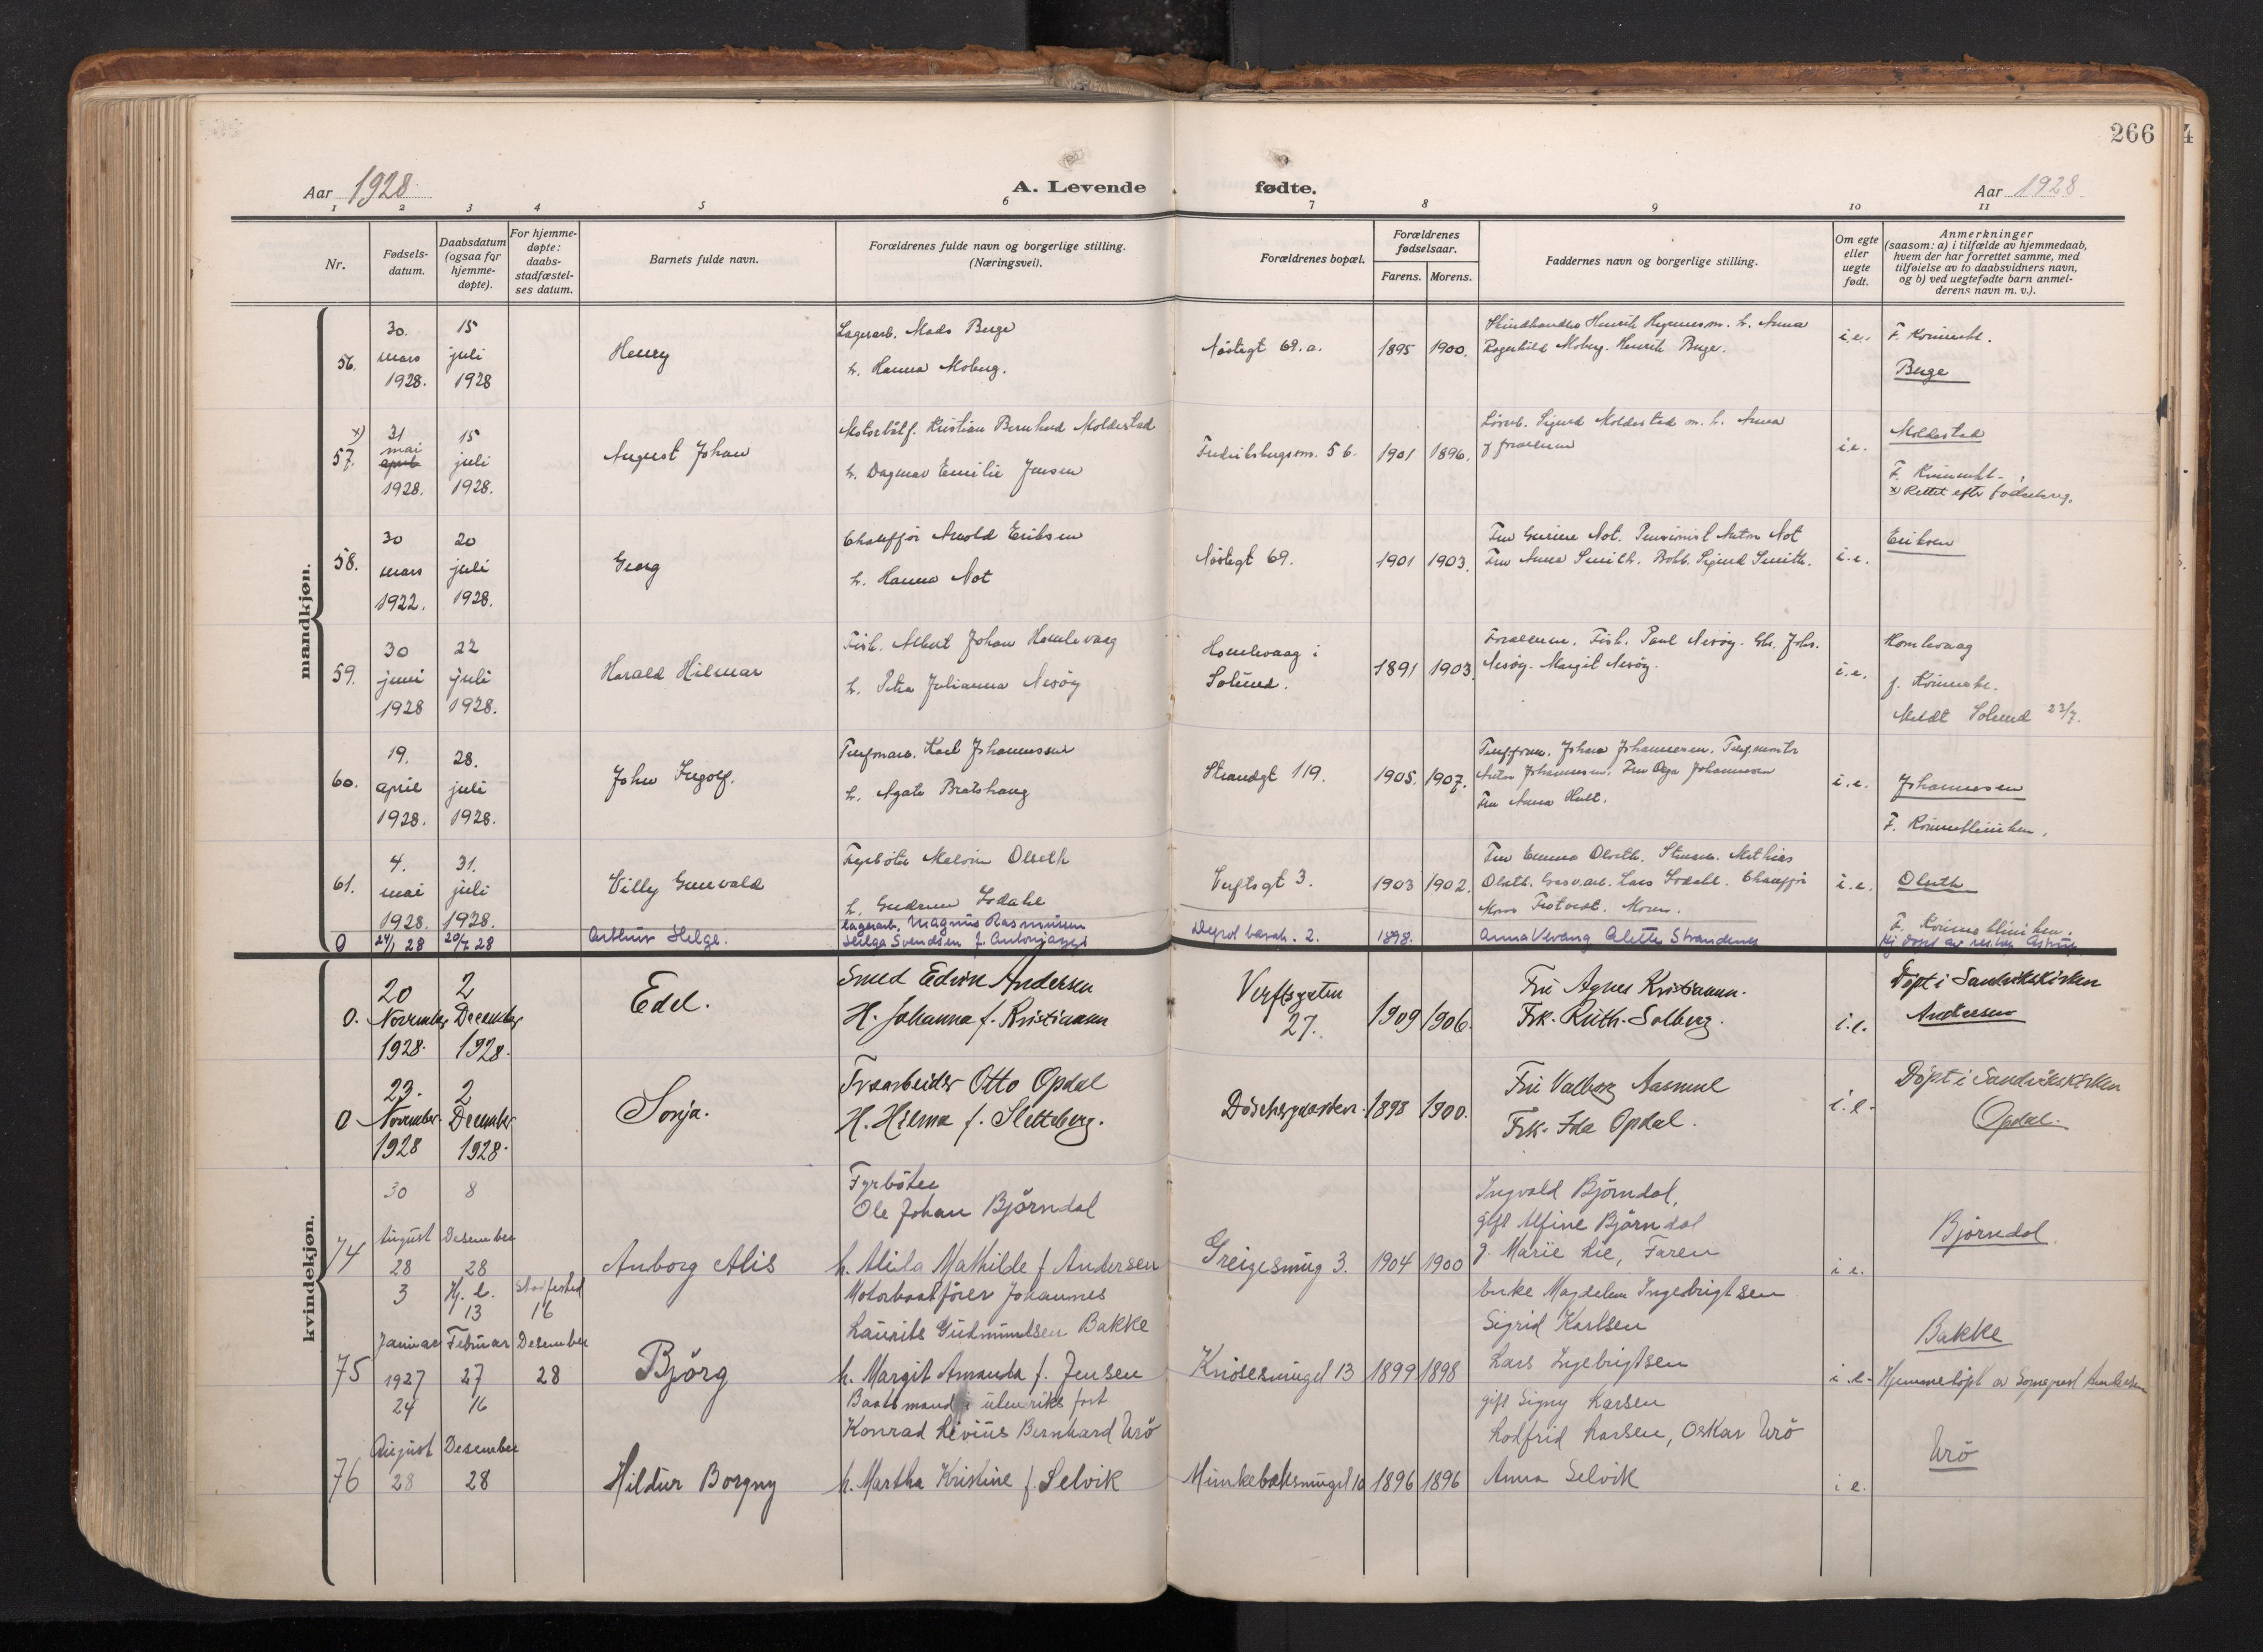 266
Aar 1928
A. Levende fødte.
Aar 1928
1 2 3 4 5 6 7 8 9 10 11
Nr.
Fødsels-
datum.
Daabsdatum
(ogsaa for
hjemme-
døpte).
For hjemme-
døpte:
daabs-
stadfæstel-
ses datum.
Barnets fulde navn.
Forældrenes fulde navn og borgerlige stilling.
(Næringsvei).
Forældrenes bopæl.
Forældrenes
fødselsaar.
Farens. Morens.
Faddernes navn og borgerlige stilling.
Om egte
eller
uegte
født.
Anmerkninger
(saasom: a) i tilfælde av hjemmedaab,
hvem der har forrettet samme, med
tilføielse av to daabsvidners navn,
og b) ved uegtefødte barn anmel-
derens navn m. v.).
mandkjøn.
56.
30. mars 1928.
15 juli 1928
Henry
Lagerarb. Mads Berge
h. Hanna Moberg.
Nöstegt 69.a.
1895 1900.
h. Anna
Ragnhild Moberg. Henrik Berge.
i.e.
Berge
x) 57.
31 mai april 1928.
15 juli 1928.
August Johan
Motorbåtf. Kristian Bernhard Moldestad
h. Dagmar Emilie Jensen
Fredriksbergsm. 56.
1901 1896.
Sigurd Moldestad m. h. Anna
i.e.
Moldestad
x) Rettet efter fødselsreg.
58.
30 mars 1922.
20 juli 1928.
Georg
Chauffør Arnold Eriksen
h. Hanna Not
Nöstegt 69.
1901 1903.
Not. Pensionist Anton Not
Fru Anna Smith. Sigurd Smith.
i.e.
Eriksen
59.
30 juni 1928
22 juli 1928.
Harald Hilmar
Fisk. Albert Johan Homlevaag
h. Petra Julianna Nesøy
Homlevaag i
Solund.
1891 1903.
Forældrene. Fisk. Paul Nesøy. Johs.
Nesøy. Margit Nesøy.
i.e.
Homlevaag
Meldt Solund 23/7.
60.
19. april 1928.
28. juli 1928.
John Ingolf.
Karl Johannessen
h. Agate Bratshaug
Strandgt 119.
1905. 1907.
Johan Johannessen.
Anton Johannessen. Fru Olga Johannessen
Fru Anna
i.e.
Johannessen
61.
4. mai 1928.
31. juli 1928.
Villy Gunvald
Fyrbøter Malvin Olseth
h. Gudrun Sodahl
Verftsgt 3.
1903 1902.
Fru Emma Olseth. Mathias
Olseth. Lars Sodahl. Chauffør
Moren.
i.e.
Olseth
0
24/1 28
20/7 28
Arthur Helge.
Lagerarb. Magnus Rasmussen
Helga Svendsen
2.
1898.
Anna Alette Strandenes
kvindekjøn.
0.
20 November 1928.
2 December 1928.
Edel.
Smed Edvin Andersen
H. Johanna f. Kristiansen
Verftsgaten
27.
1909 1906.
Fru Agnes Kristiansen.
Frk. Ruth. Solberg.
i.e.
Döpt i Sandvikskirken
Andersen
0
23. November 1928
2 December 1928.
Sonja.
Træarbeider Otto Opdal
H. Hilma f. Sletteberg.
1898 1900.
Fru Valborg
Frk. Ida Opdal.
i.e.
Döpt i Sandvikskirken
Opdal.
74
30 August 28
8 Desember 28
Anborg Alis
Fyrböter
Ole Johan Björndal
h. Alida Mathilde f Andersen
Greigesmug 3.
1904 1900
Ingvald Björndal,
gift Alfine Björndal
g. Marie Lie, Faren
i e.
Björndal.
75
3 Januar 1927
Hj. d. 13 Februar 27
Stadfested 16 Desember 28
Björg
Motorbaatförer Johannes
Laurits Gudmundsen Bakke
h. Margit Amanda f. Jensen
Knösesmuget 13
1899 1898
Enke Magdelena Ingebrigtsen
Sigrid Karlsen
Lars Ingebrigtsen
i e.
Bakke
Hjemmedöpt av Sogneprest Andersen
76
24 August 28
16 Desember 28
Hildur Borgny
Baatsmand i utenriks fart
Konrad Livius Bernhard Urö
h. Martha Kristine f. Selvik
Munkebæksmuget 10
1896 1896
gift Signy Karsen
Lodfrid Larsen, Oskar Urö
Anna Selvik
i e.
Urö